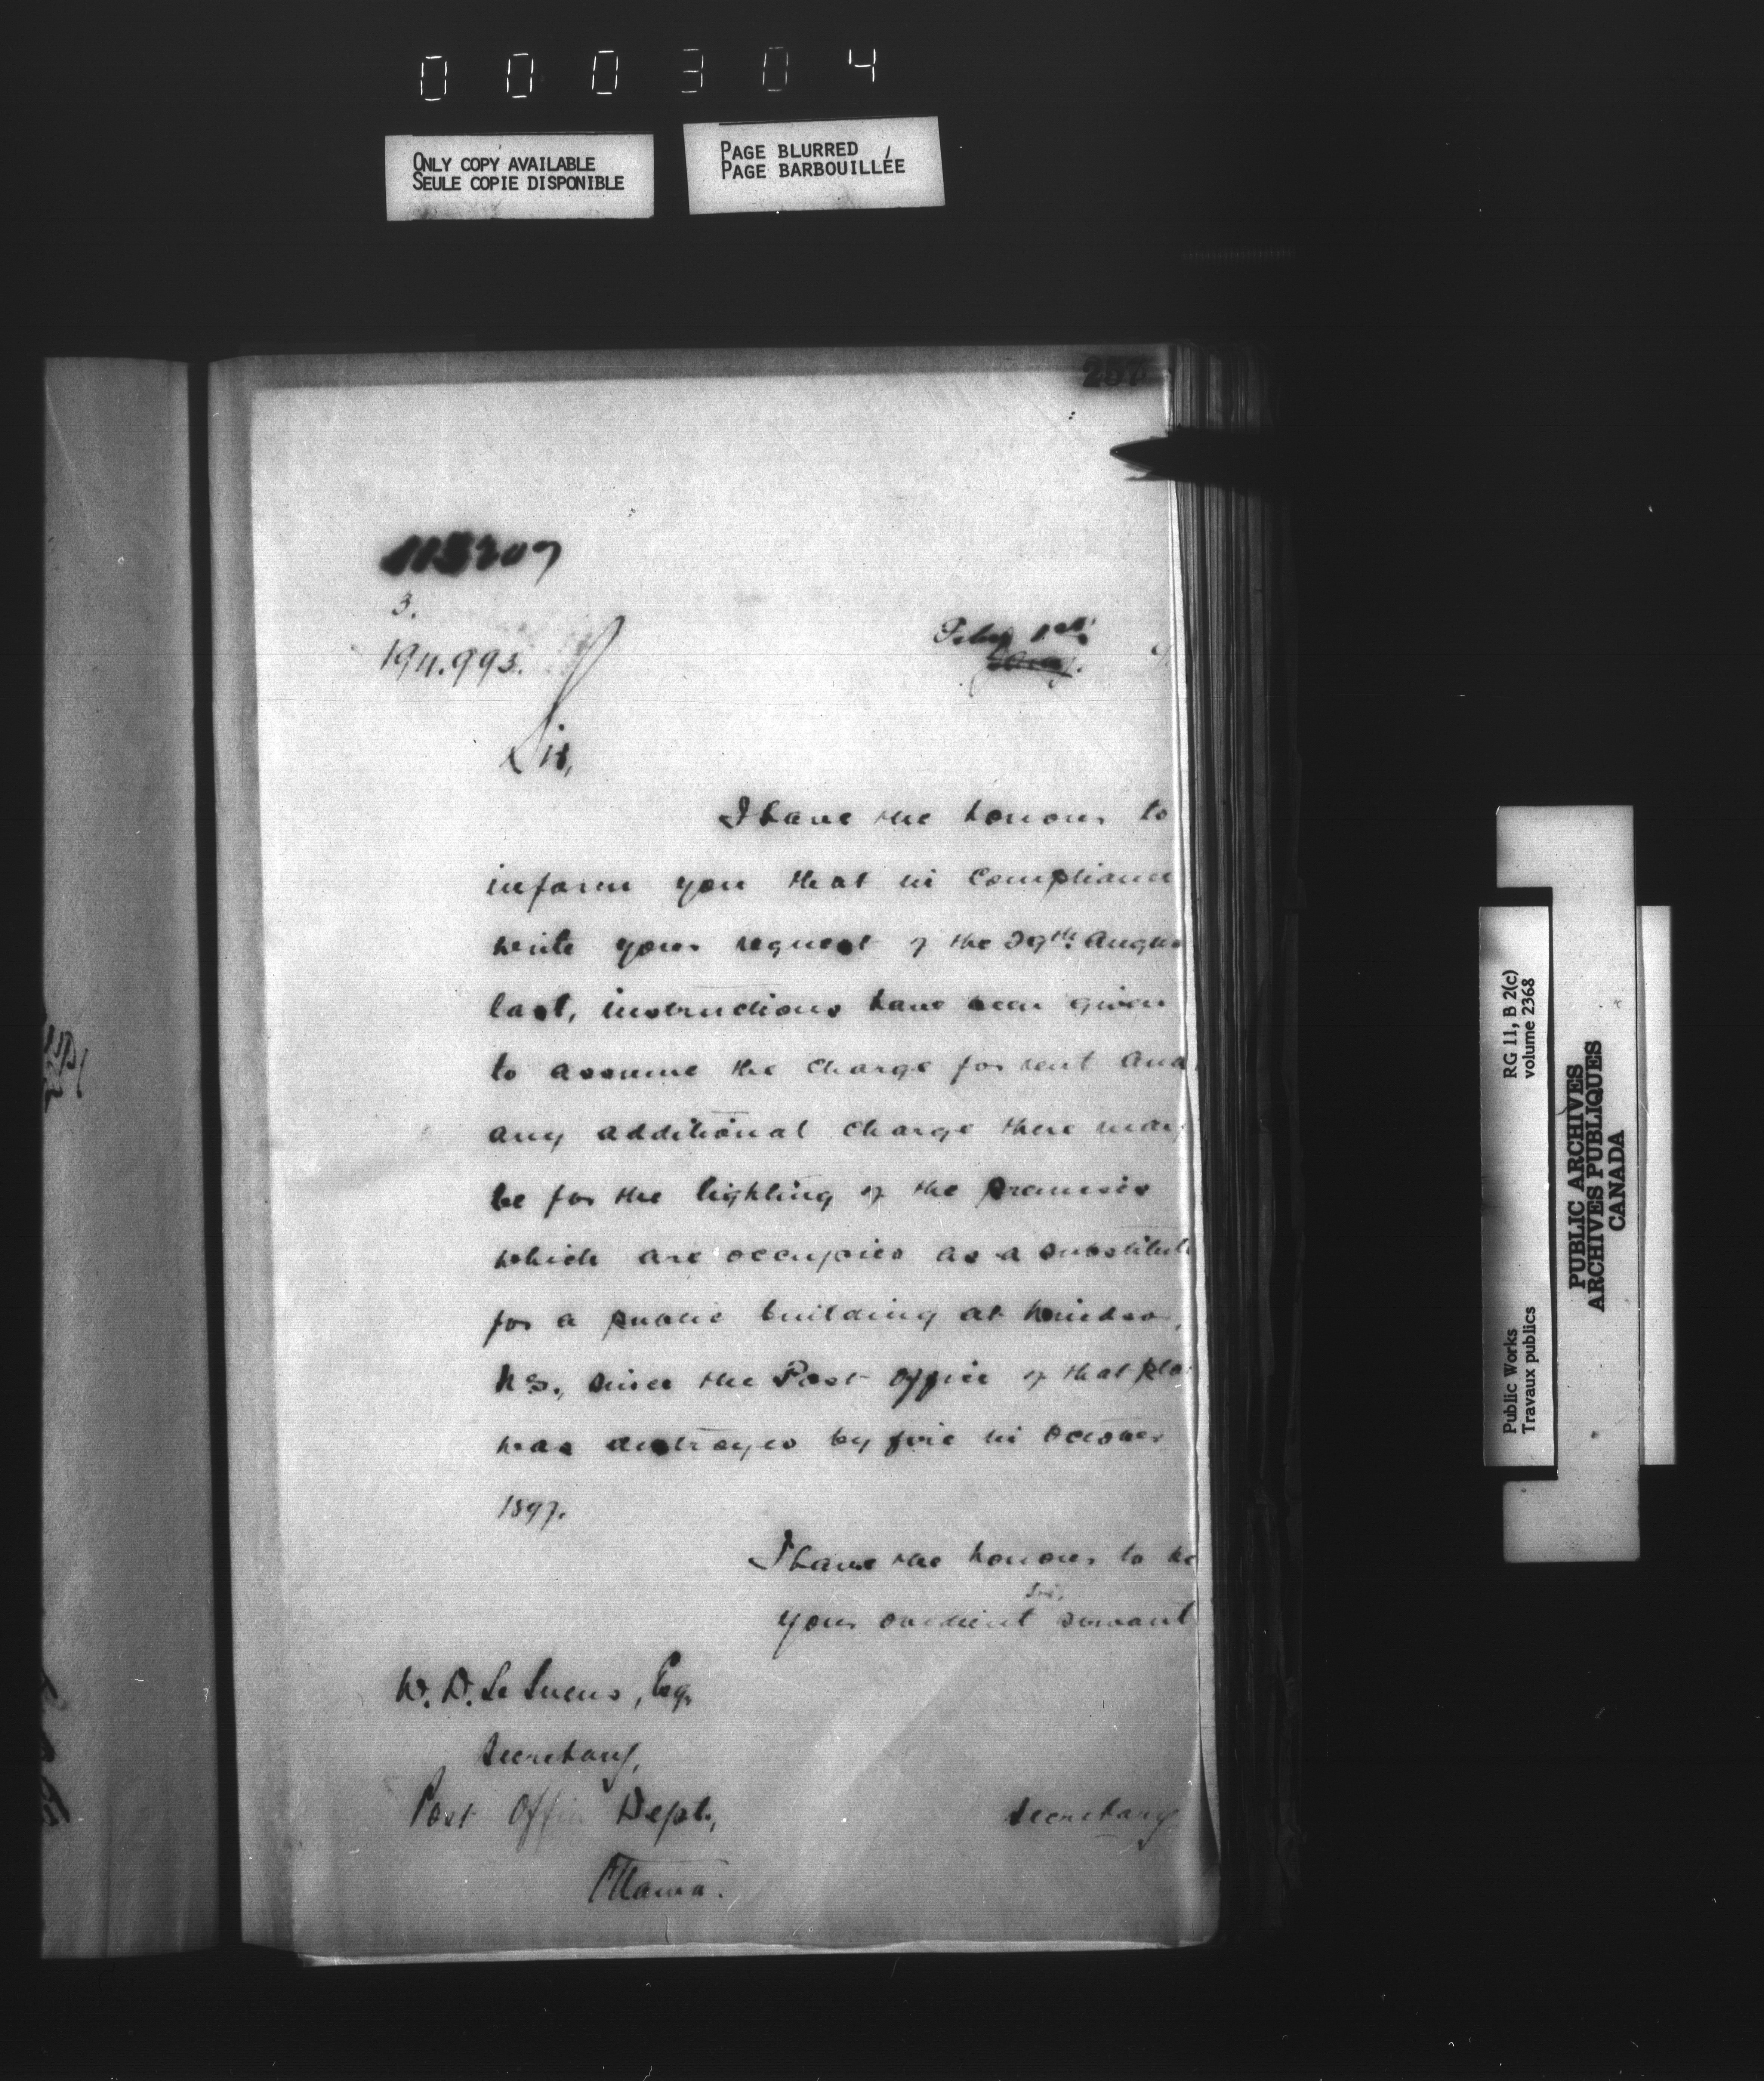 000304
ONLY COPY AVAILABLE
SEULE COPIE DISPONIBLE
PAGE BLURRED
PAGE BARBOUILLÉE
3.
194.993.
Feby 1st
Sir,
I have the honour to
inform you that in compliance
with your request of the 29th August
last, instructions have been given
to assume the charge for rent and
any additional charge there may
be for the lighting of the premises
which are occupied as a substitute
for a public building at Windsor,
N.S., since the Post Office of that place
was destroyed by fire in October
1897.
I have the honour to be
Sir,
your obedient servant
W. D. Le Sueur, Esq.
Secretary,
Post Office Dept.,
Ottawa.
Secretary
Public Works
Travaux publics
RG 11, B 2(c)
volume 2368
PUBLIC ARCHIVES
ARCHIVES PUBLIQUES
CANADA